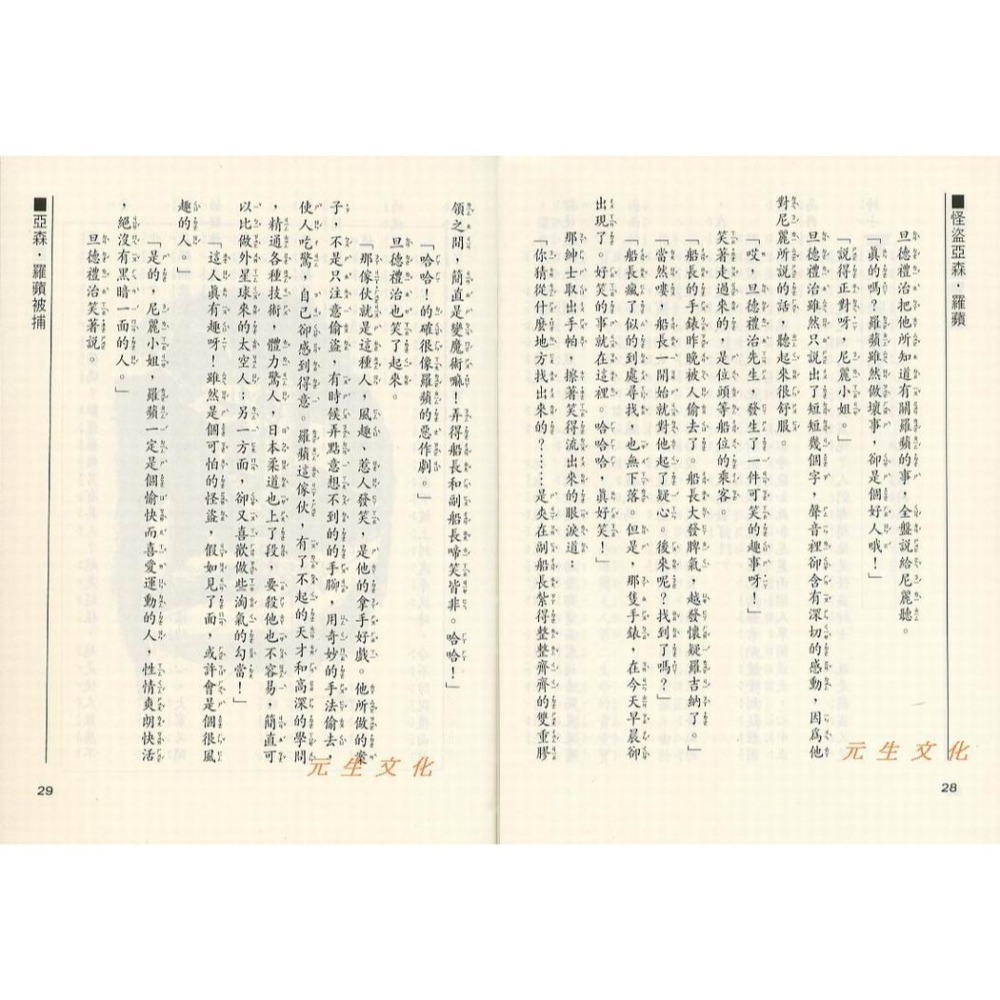 ■怪盜亞森・羅蘋
旦德禮治把他所知道有關羅蘋的事，全盤說給尼麗聽。
「真的嗎？羅蘋雖然做壞事，卻是個好人哦！」
「說得正對呀，尼麗小姐。」
旦德禮治雖然只說出了短短幾個字，聲音裡卻含有深切的感動，因為他
對尼麗所說的話，聽起來很舒服。
「哎，旦德禮治先生，發生了一件可笑的趣事呀！」
笑著走過來的，是位頭等船位的乘客。
「船長的手錶昨晚被人偷去了。船長大發脾氣，越發懷疑羅吉納了。」
「當然嘍，船長一開始就對他起了疑心。後來呢？找到了嗎？」
「船長瘋了似的到處尋找，也無下落。但是，那隻手錶，在今天早晨卻
出現了。好笑的事就在這裡。哈哈哈，真好笑！」
那紳士取出手帕，擦著笑得流出來的眼淚道：
「你猜從什麼地方找出來的？……是夾在副船長紮得整整齊齊的雙重膠
28
領之間，簡直是變魔術嘛！弄得船長和副船長啼笑皆非。哈哈！」
「哈哈！的確很像羅蘋的惡作劇。」
旦德禮治也笑了起來。
「那傢伙就是這種人，風趣、惹人發笑，是他的拿手好戲。他所做的案
子，不是只注意偷盜，有時候弄點意想不到的的手腳，用奇妙的手法偷去，
使人吃驚，自己卻感到得意。羅蘋這傢伙，有了不起的天才和高深的學問
，精通各種技術，體力驚人，日本柔道也上了段，要殺他也不容易，簡直可
以比做外星球來的太空人；另一方面，卻又喜歡做些淘氣的勾當！」
「這人真有趣呀！雖然是個可怕的怪盜，假如見了面，或許會是個很風
趣的人。」
「是的，尼麗小姐，羅蘋一定是個愉快而喜愛運動的人，性情爽朗快活
，絕沒有黑暗一面的人。」
旦德禮治笑著說。
■亞森・羅蘋被捕
29
元生文化
元生文化